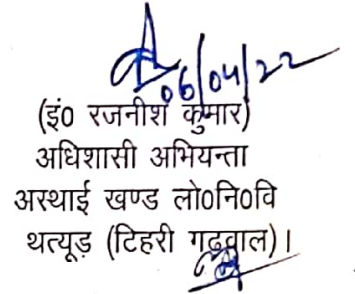 06/04/22
(इं0 रजनीश कुमार)
अधिशासी अभियन्ता
अस्थाई खण्ड लो0नि0वि
थत्यूड़ (टिहरी गढ़वाल)।